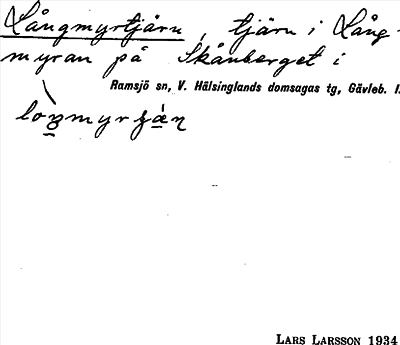 Långmyrtjärn, tjärn i Lång-
myran på Skånberget i
Ramsjö sn, V. Hälsinglands domsagas tg, Gävleb. l.
LARS LARSSON 1934